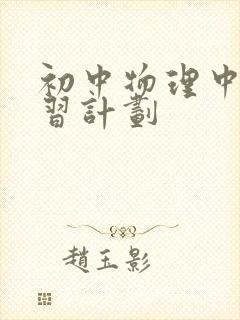 初中物理中
習計劃
趙玉影